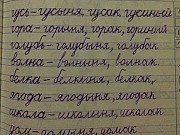 гусь-гусыня, гусак, гусиный
гора-горыня, горак, гориный
голубь-голубыня, голубак
волна-волныня, волнак
белка-белкиня, белкак,
ягода-ягодыня, ягодак
школа-школыня, школак
дом-домыня, домак